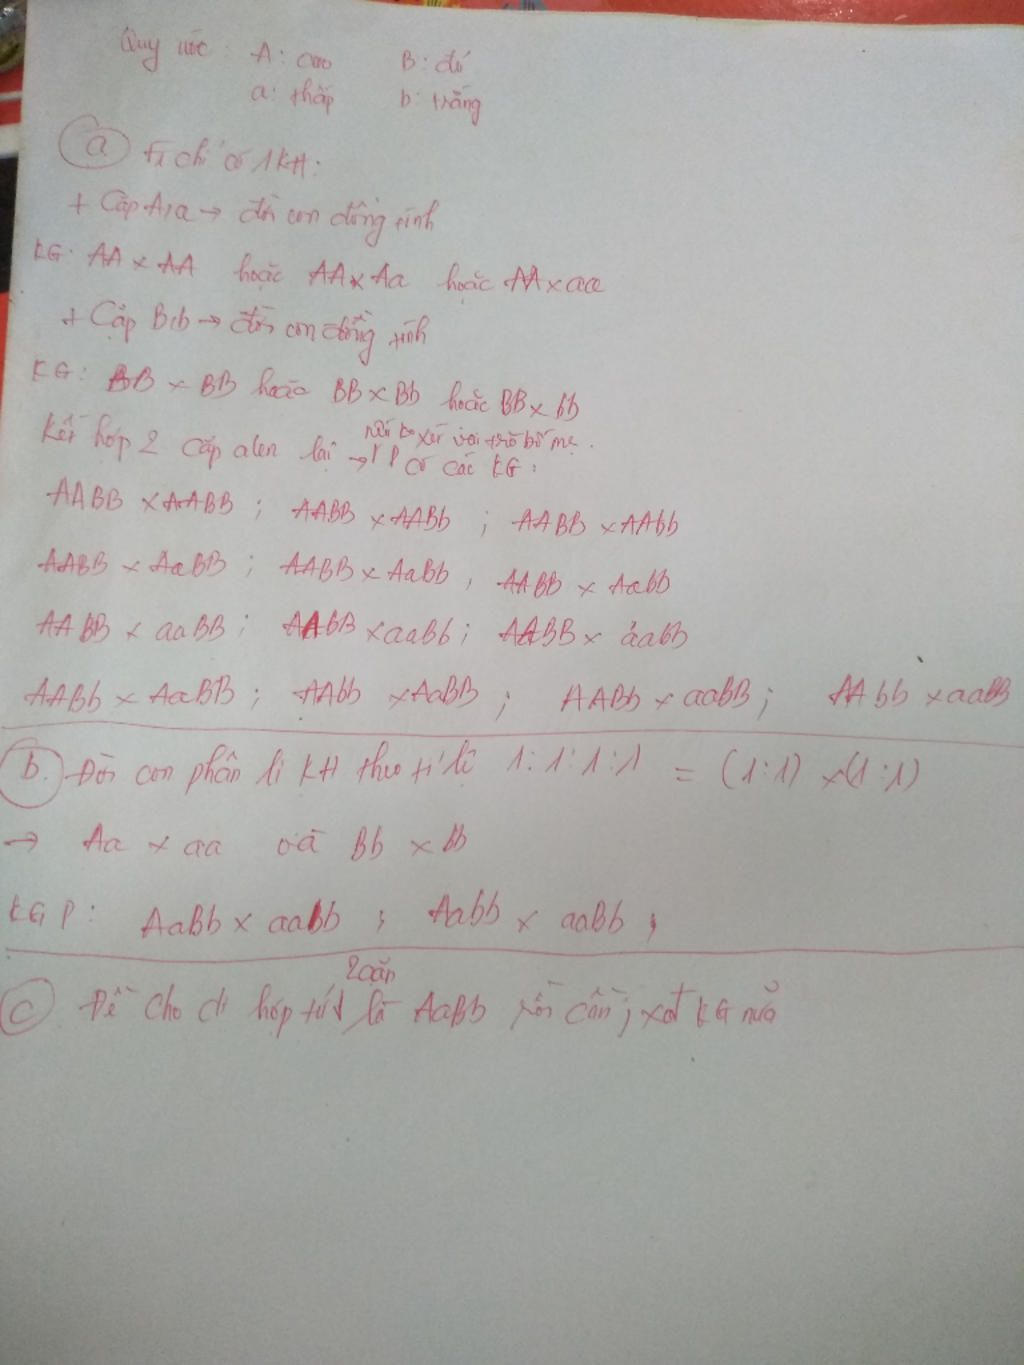 Quy ước: A: cao B: đỏ
a: thấp b: trắng
a F1 chỉ có 1 KH:
+ Cặp A,a → đời con đồng tính
KG: AA × AA hoặc AA × Aa hoặc AA × aa
+ Cặp B,b → đời con đồng tính
KG: BB × BB hoặc BB × Bb hoặc BB × bb
nếu ko xét vai trò bố mẹ.
Kết hợp 2 cặp alen lại → P có các KG:
AABB × AABB ; AABB × AABb ; AABB × AAbb
AABB × AaBB ; AABB × AaBb , AABB × Aabb
AABB × aaBB ; AABB × aaBb ; AABB × aabb
AABb × AaBB ; AAbb × AaBB ; AABb × aaBB ; AAbb × aaBB
b. Đời con phân li KH theo tỉ lệ 1:1:1:1 = (1:1) × (1:1)
→ Aa × aa và Bb × bb
KG P: AaBb × aabb ; Aabb × aaBb ;
2 cặp
c Đề cho dị hợp tử là AaBb rồi cần j xđ KG nữa